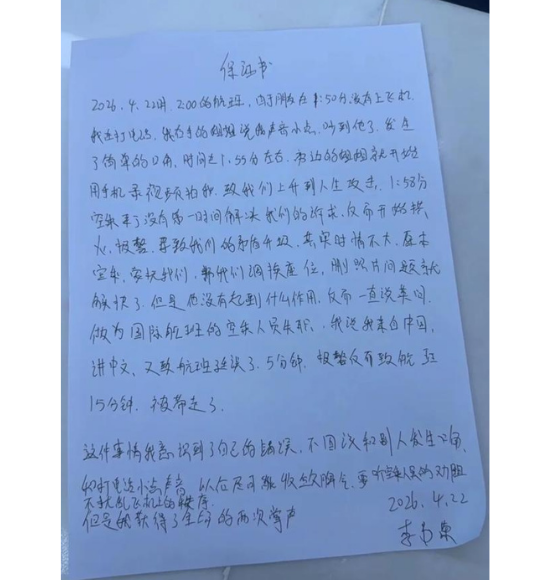 保证书
2026.4.22日 2:00的航班,由于朋友在1:50分没有上飞机,
我在打电话,我右手的姐姐说我声音小点,吵到他了.发生
了简单的口角,时间是1.55分左右.旁边的姐姐就开始
用手机录视频拍我.致我们上升到人生攻击,1:58分
空乘来了没有第一时间解决我们的诉求,反而开始拱
火,报警,导致我们的矛盾升级,其实时情不大,原本
空乘,安抚我们,帮我们调换座位,删照片问题就
解决了.但是他没有起到什么作用,反而一直说英问.
做为国际航班的空乘人员失职.我说我来自中国,
讲中文,又致航班延误了.5分钟.报警反而致
15分钟.被带走了.
这件事情我意识到了自己的错误,不因该和别人发生口角,
和打电话小点声音,以后尽可能收敛脾气.要听空乘人员的劝阻
不扰乱飞机上的秩序.
但是我获得了全场的两次掌声
2026.4.22
李